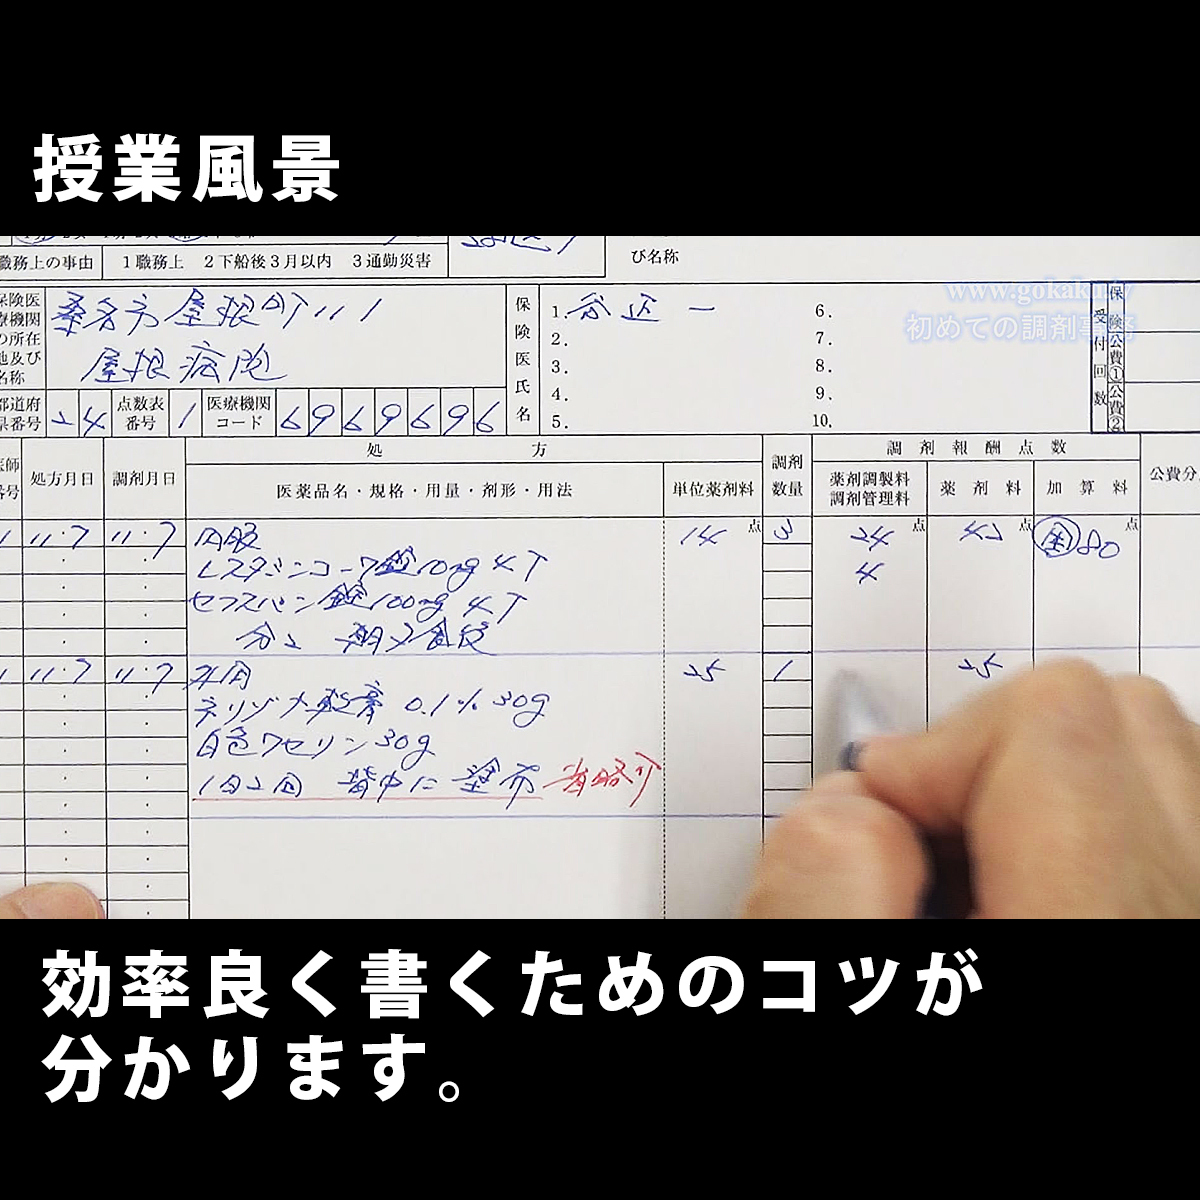 授業風景
び名称
職務上の事由 1職務上 2下船後3月以内 3通勤災害
www.gokaku.tv
初めての調剤事務
保険医
療機関
の所在
地及び
名称
桑名市屋根町111
屋根病院
保険医氏名
1. 谷辺 一
2.
3.
4.
5.
6.
7.
8.
9.
10.
受付回数
保険
公費①
公費②
都道府
県番号 24
点数表
番号 1
医療機関
コード 6969696
医師
番号
処方月日
調剤月日
処方
医薬品名・規格・用量・剤形・用法
単位薬剤料
調剤
数量
調剤報酬点数
薬剤調製料
調剤管理料
薬剤料
加算料
公費分
1 11・7 11・7 内服 14点 3 24点 42点 困80点
レスタミンコーワ錠10mg 4T 4
セフスパン錠100mg 4T
分2 朝夕食後
1 11・7 11・7 外用 25 1 25
ネリゾナ軟膏 0.1% 30g
白色ワセリン30g
1日2回 背中に塗布 省略介
効率良く書くためのコツが
分かります。